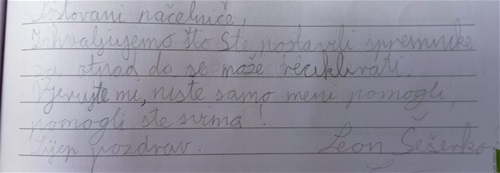 Poštovani načelniče,
Zahvaljujemo što ste postavili spremnike
za otpad da se može reciklirati.
Vjerujte mi, niste samo meni pomogli,
pomogli ste svima!
Lijep pozdrav. Leon Šešerko